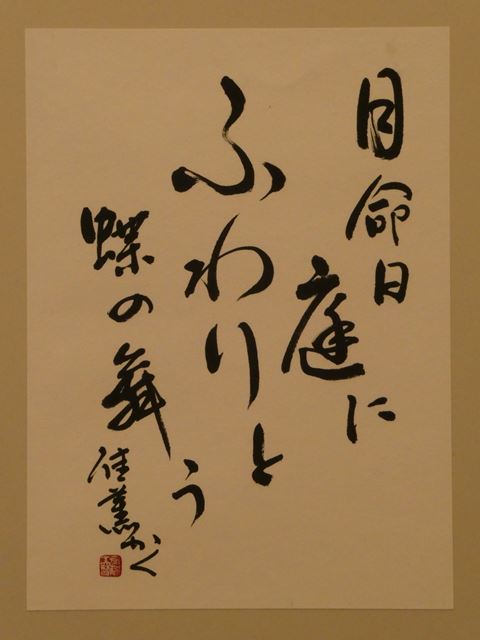 月命日
庭に
ふわりと
蝶の舞う
佳薫かく